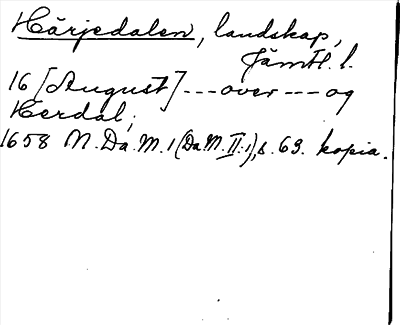 Härjedalen, landskap,
Jämtl. l.
16 [August] --- over --- og
Herdal;
1658 N. Da. M. 1 (Da. M. II:1), s. 63. kopia.